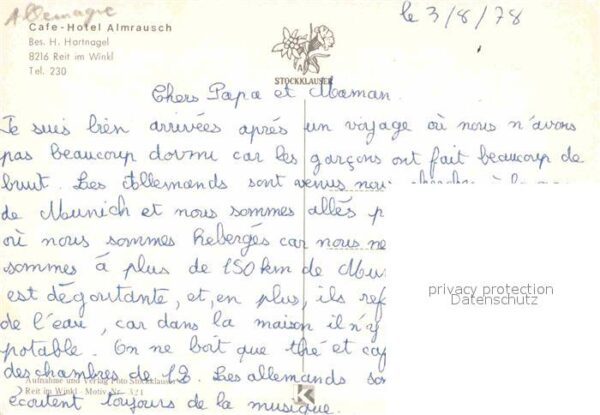 Allemagne
le 3/8/78
Cafe-Hotel Almrausch
Bes. H. Hartnagel
8216 Reit im Winkl
Tel. 230
STOCKKLAUSER
Chers Papa et Maman.
Je suis bien arrivées après un voyage où nous n'avons
pas beaucoup dormi car les garçons ont fait beaucoup de
bruit. Les Allemands sont venus nous à la
de Munich et nous sommes allés
où nous sommes hebergés car nous ne
sommes à plus de 150 km de
est dégoutante, et, en plus, ils
de l'eau, car dans la maison il n'y
potable. On ne boit que thé et
des chambres de 12. Les allemands
écoutent toujours de la musique.
Aufnahme und Verlag Foto Stockklauser
Reit im Winkl - Motiv Nr. 321
K
privacy protection
Datenschutz